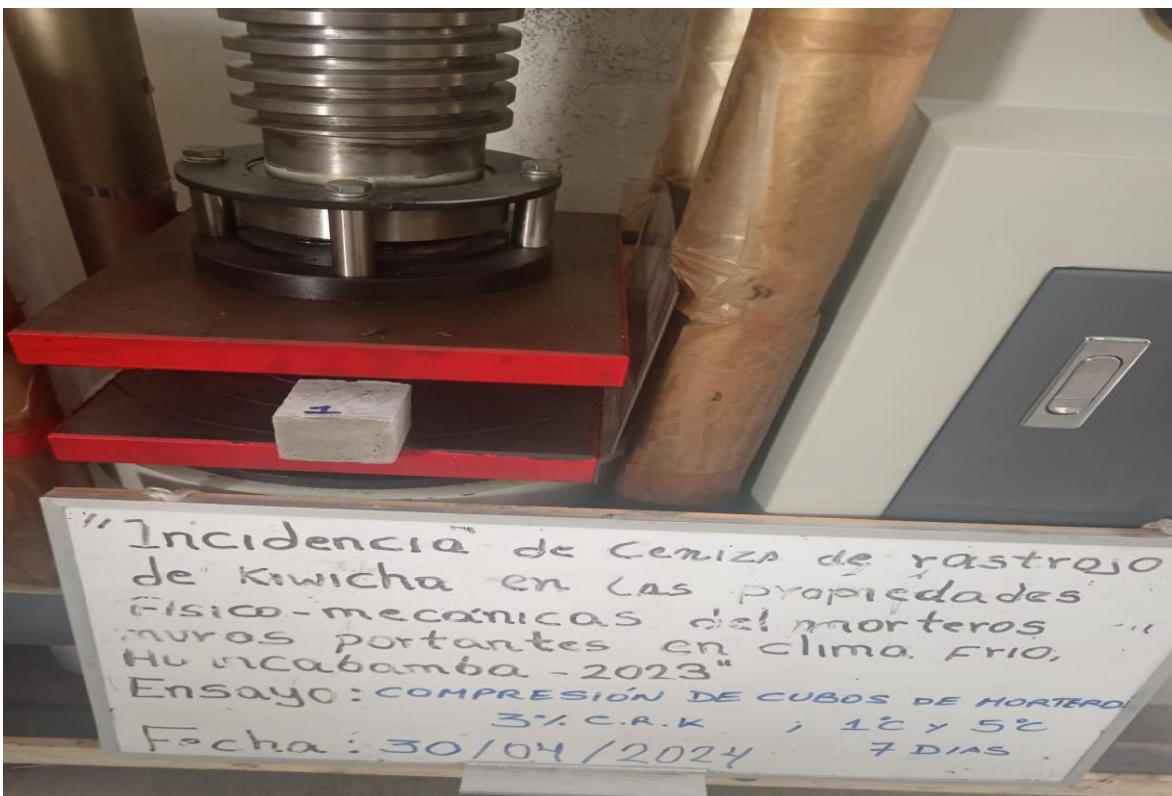 1
"Incidencia de Ceniza de rastrojo
de Kiwicha en las propiedades
Físico-mecánicas del morteros
muros portantes en clima frio,
Huancabamba - 2023"
Ensayo: COMPRESIÓN DE CUBOS DE MORTERO
3% C.R.K ; 1°C y 5°C
Fecha: 30/04/2024 7 DIAS